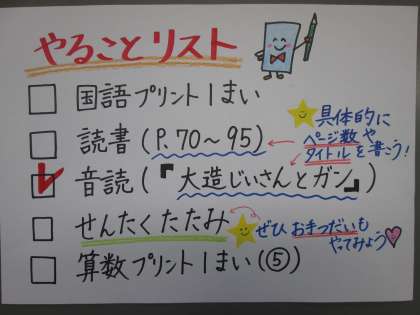 やることリスト
国語プリント1まい
読書(P.70〜95)
音読(『大造じいさんとガン』)
せんたくたたみ
算数プリント1まい(⑤)
具体的に
ページ数や
タイトルを書こう!
ぜひ お手つだいも
やってみよう